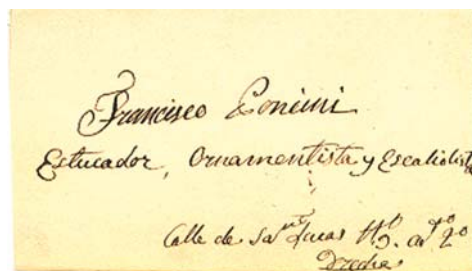 Francisco Poncini
Estucador, Ornamentista y Escaliolista
Calle de Sn Lucas
Drecha